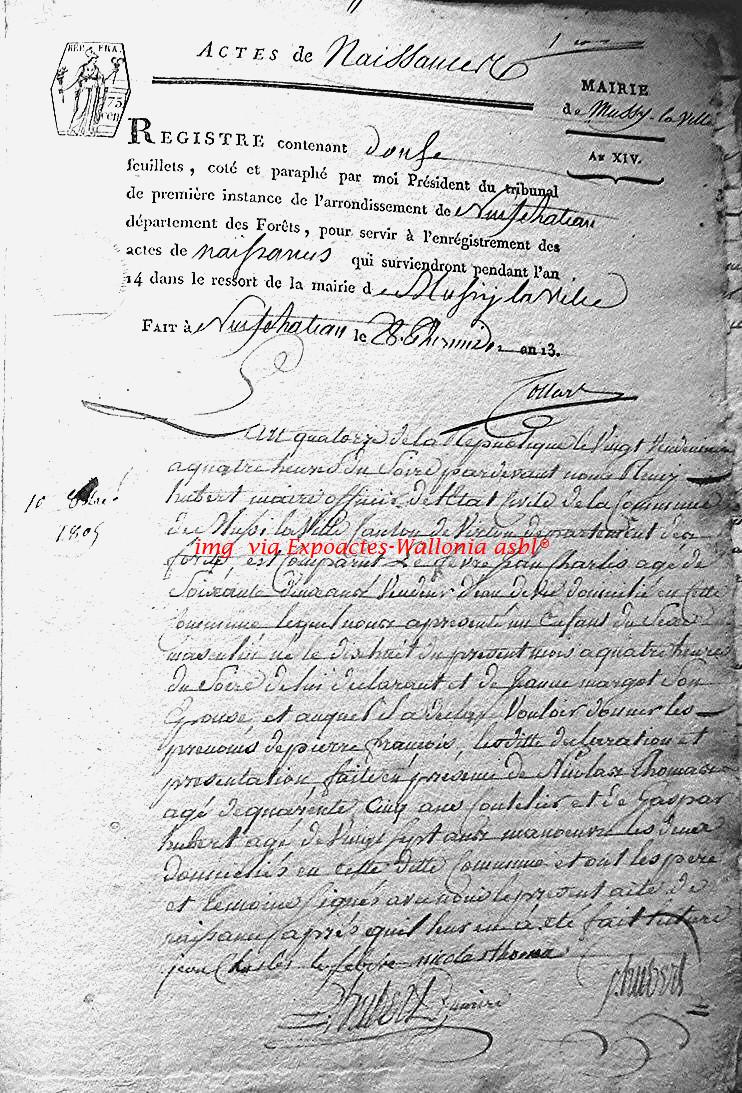 Actes de Naissances
1er
RÉP. FRA.
75
cen
MAIRIE
de Mussy-la-Ville
An XIV.
Registre contenant douse
feuillets, coté et paraphé par moi Président du tribunal
de première instance de l'arrondissement de Neufchateau
département des Forêts, pour servir à l'enrégistrement des
actes de naissances qui surviendront pendant l'an
14 dans le ressort de la mairie de Mussy la ville
Fait à Neufchateau le 28 Thermidor an 13.
Collart
L'an quatorze de la République le vingt vendemiaire
a quatre heures du Soire pardevant nous
hubert maire officier de l'Etat Civile de la Commune
de Mussi la Ville Canton de Virton departement des
10 8bre
1805
img via Expoactes-Wallonia asbl©
forêts, est Comparut Le fevre jean Charles agé de
Soixante deux ans Vendeur d'eau de vie domicilié en cette
Commune lequel nous a présenté un Enfant du Sexe
masculin né le dixhuit du présent mois a quatre heures
du Soire de lui déclarant et de Jeanne margot Son
Epouse, et auquel il a déclaré Vouloir donner les
prenoms de pierre françois, lesditte declaration et
presentation faite en présence de Nicolas Thomas
agé de quarente Cinq ans Coutelier et de Gaspar
hubert agé de Vingt Sept ans manoeuvre les deux
domiciliés en cette ditte Commune et ont les pere
et temoins Signés avec nous le present acte de
naissance après quil leur en a été fait lecture
jean Charles le febvre nicolas thomas
hubert maire
g hubert